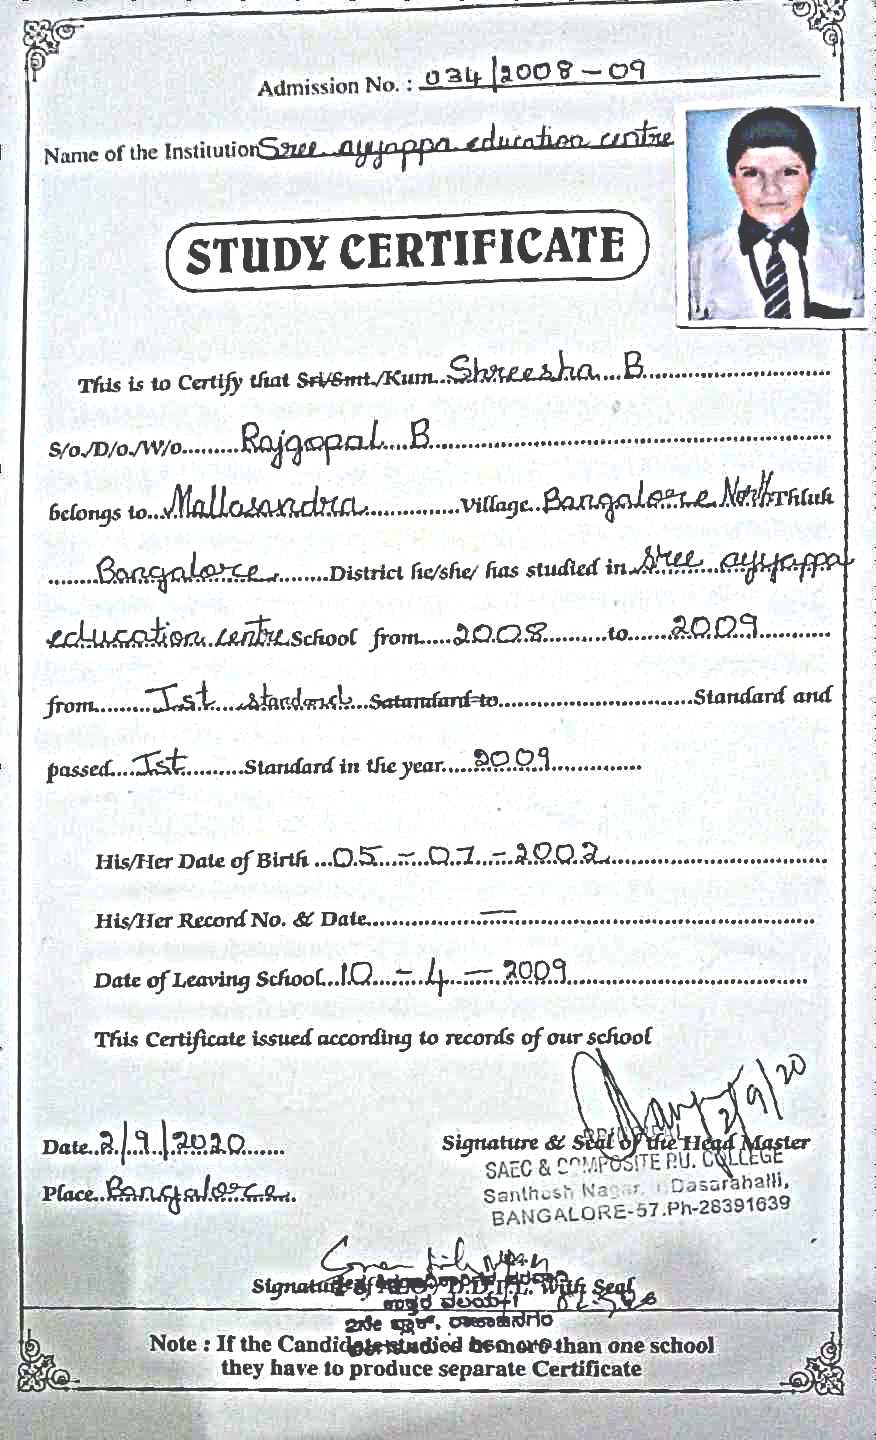 Admission No. : 034/2008-09
Name of the Institution Sree ayyappa education centre
STUDY CERTIFICATE
This is to Certify that Sri/Smt./Kum. Shreesha B
S/o./D/o./W/o. Rajgopal B
belongs to Mallasandra Village Bangalore North Thluk
Bangalore District he/she/ has studied in Sree ayyappa
education centre School from 2008 to 2009
from Ist standard Satandard to Standard and
passed Ist Standard in the year 2009
His/Her Date of Birth 05-07-2002
His/Her Record No. & Date —
Date of Leaving School 10-4-2009
This Certificate issued according to records of our school
2/9/20
Date 2/9/2020
Signature & Seal of the Head Master
SAEC & COMPOSITE P.U. COLLEGE
Place Bangalore
Santhosh Nagar, Dasarahalli,
BANGALORE-57.Ph-28391639
Signature of D.D.P.I. With Seal
ಉತ್ತರ ವಲಯ-1
Note : If the Candidate studied more than one school
they have to produce separate Certificate